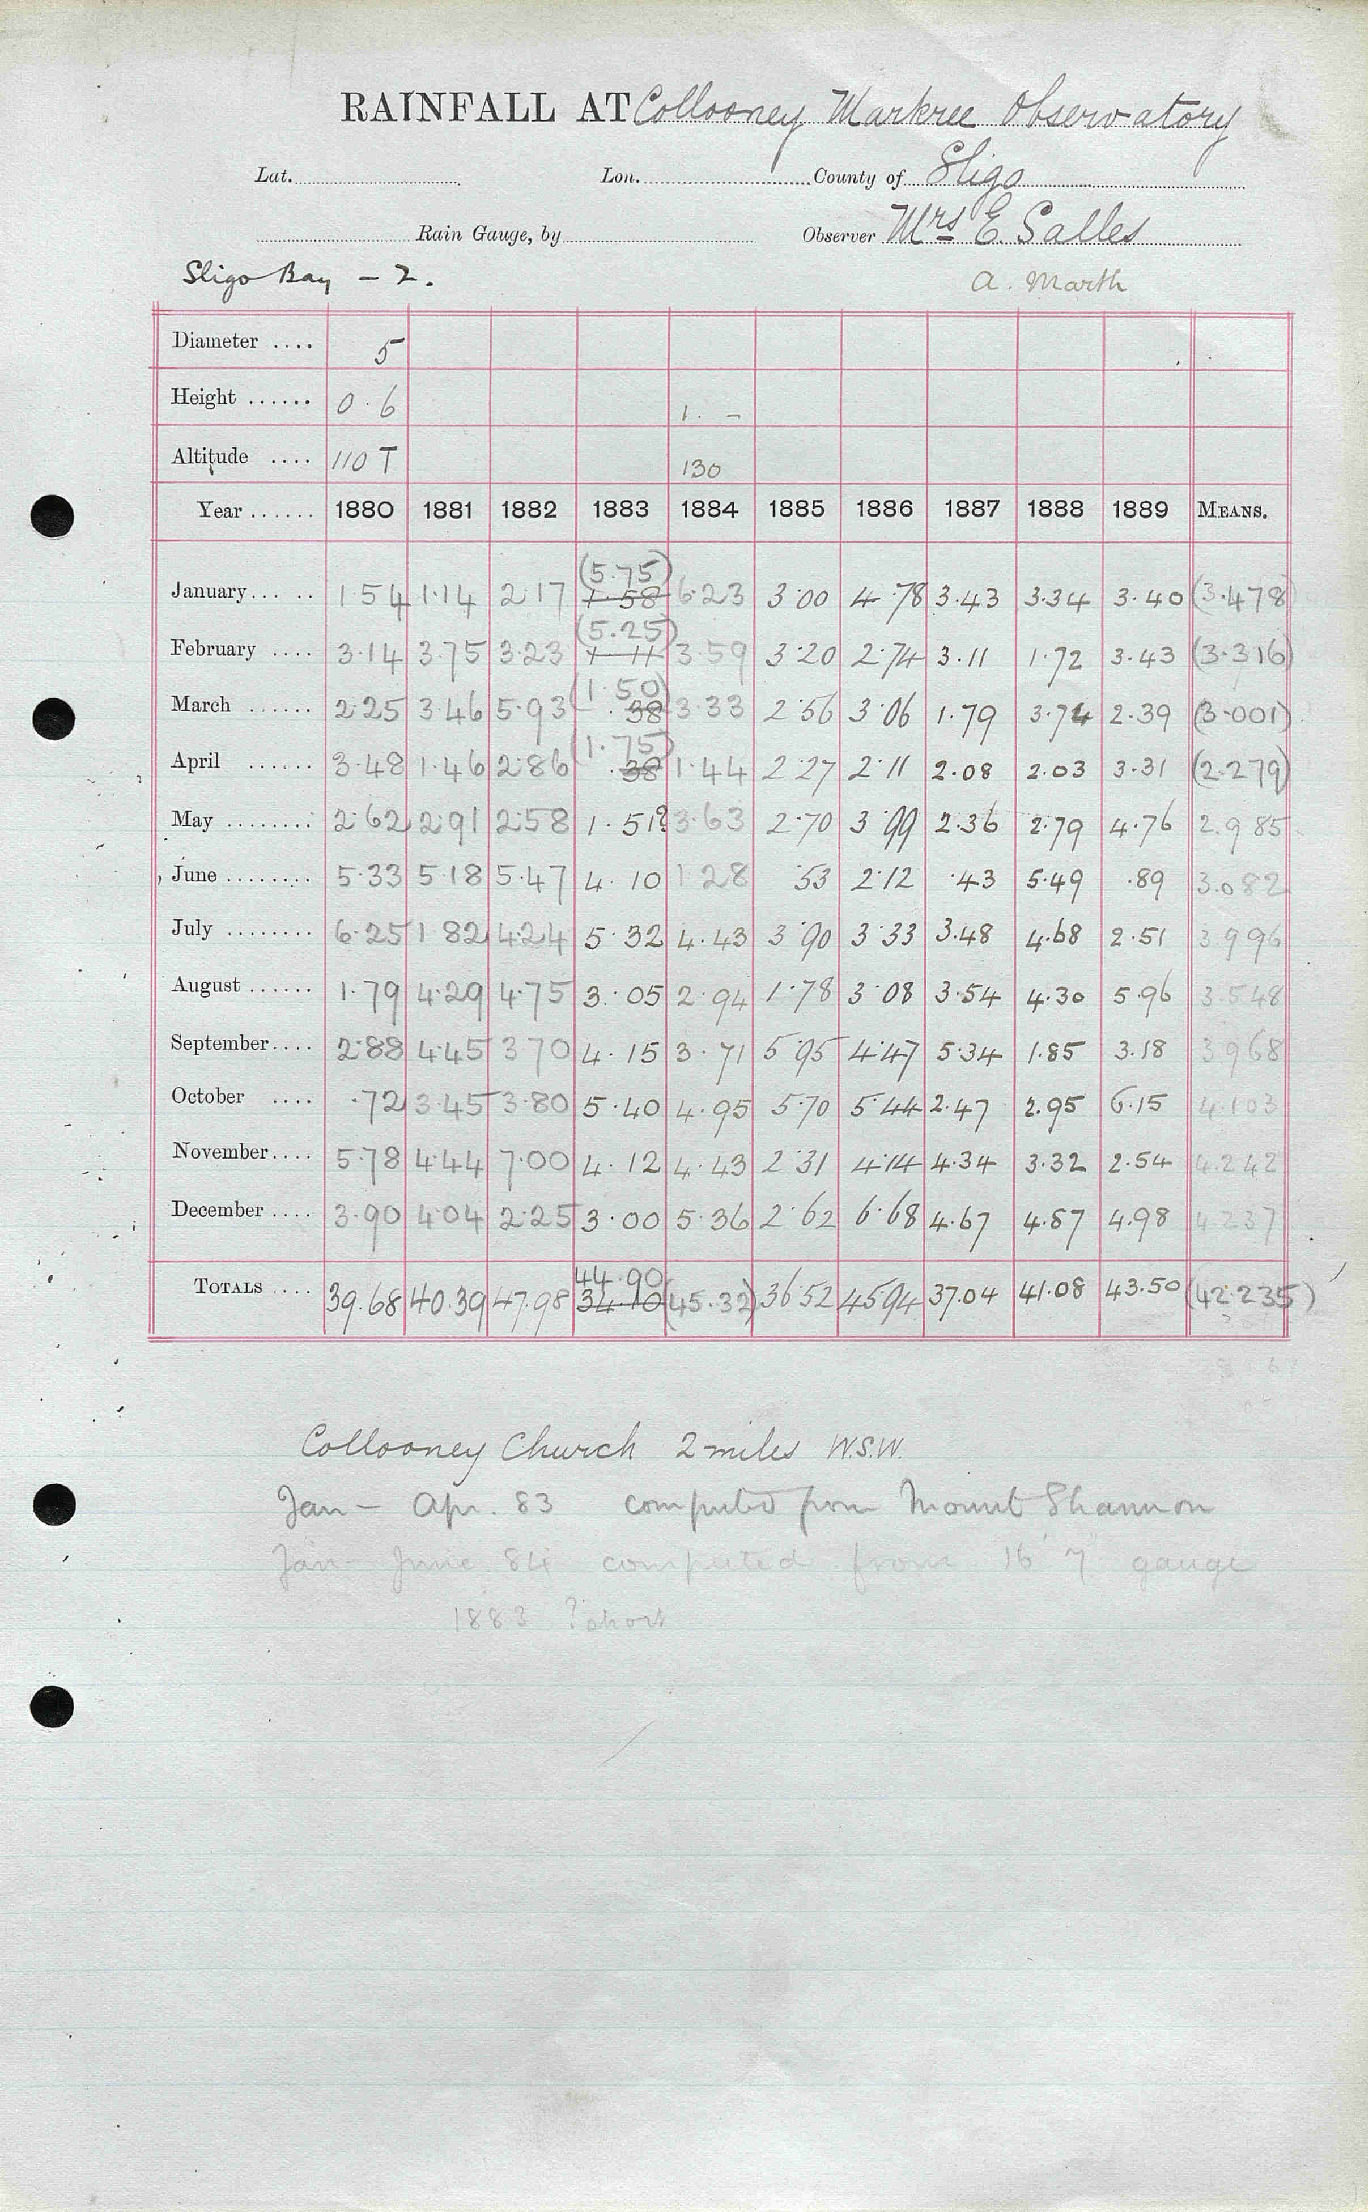 RAINFALL AT Collooney Markree Observatory
Lat. Lon. County of Sligo
Rain Gauge, by Observer Mrs E. Salles
Sligo Bay - 2. A. Marth
Diameter .... 5
Height ...... 0.6 1. -
Altitude .... 110 T 130
Year ...... 1880 1881 1882 1883 1884 1885 1886 1887 1888 1889 MEANS.
(5.75)
January... .. 1.54 1.14 2.17 1.58 6.23 3.00 4.78 3.43 3.34 3.40 (3.478)
(5.25)
February .... 3.14 3.75 3.23 1.11 3.59 3.20 2.74 3.11 1.72 3.43 (3.316)
(1.50)
March ...... 2.25 3.46 5.93 .38 3.33 2.56 3.06 1.79 3.74 2.39 (3.001)
(1.75)
April ...... 3.48 1.46 2.86 .38 1.44 2.27 2.11 2.08 2.03 3.31 (2.279)
May ........ 2.62 2.91 2.58 1.51? 3.63 2.70 3.99 2.36 2.79 4.76 2.985
June ........ 5.33 5.18 5.47 4.10 1.28 .53 2.12 .43 5.49 .89 3.082
July ........ 6.25 1.82 4.24 5.32 4.43 3.90 3.33 3.48 4.68 2.51 3.996
August ...... 1.79 4.29 4.75 3.05 2.94 1.78 3.08 3.54 4.30 5.96 3.548
September.... 2.88 4.45 3.70 4.15 3.71 5.95 4.47 5.34 1.85 3.18 3.968
October .... .72 3.45 3.80 5.40 4.95 5.70 5.44 2.47 2.95 6.15 4.103
November.... 5.78 4.44 7.00 4.12 4.43 2.31 4.14 4.34 3.32 2.54 4.242
December .... 3.90 4.04 2.25 3.00 5.36 2.62 6.68 4.67 4.87 4.98 4.237
44.90
TOTALS .... 39.68 40.39 47.98 34.10 (45.32) 36.52 45.94 37.04 41.08 43.50 (42.235)
Collooney Church 2 miles W.S.W.
Jan - Apr. 83 computed from Mount Shannon
Jan - June 84 computed from 16' 7" gauge
1883 ? short